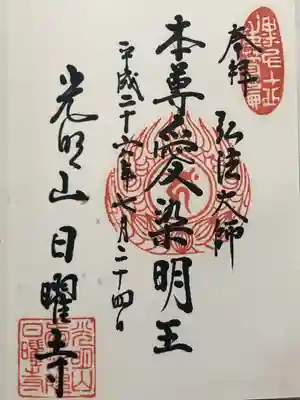 奉拝
弘法大師
本尊愛染明王
平成二十六年七月二十四日
光明山日曜寺